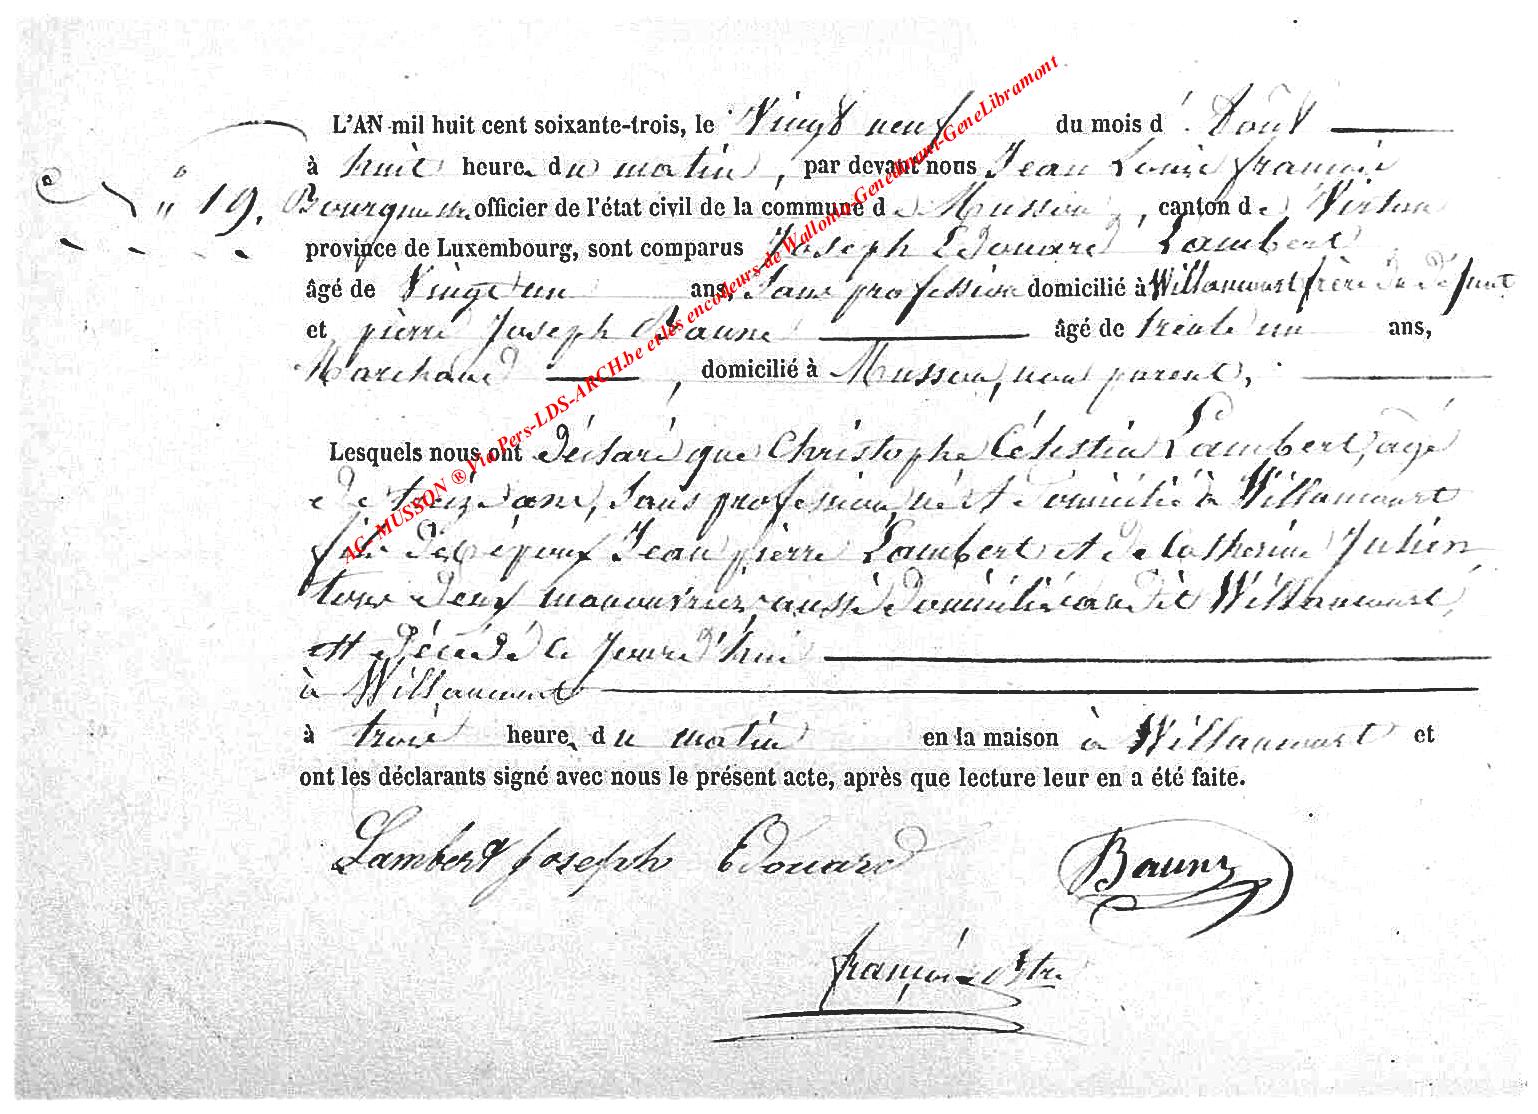 L'AN mil huit cent soixante-trois, le Vingt neuf du mois d'Août
à huit heure du matin, par devant nous Jean Louis françois
N° 19. Bourgmestre officier de l'état civil de la commune de Musson, canton de Virton
province de Luxembourg, sont comparus Joseph Edouard Lambert
âgé de Vingt un ans, Sans profession domicilié à Willancourt frère du défunt
et pierre Joseph Baune âgé de trente un ans,
Marchand, domicilié à Musson, non parent,
Lesquels nous ont déclaré que Christophe Célestin Lambert, agé
de treize ans, sans profession, né et domicilié à Willancourt
fils des époux Jean pierre Lambert et de Catherine Julien
tous deux manouvriers, aussi domiciliés au dit Willancourt,
est décédé ce jourd'hui
à Willancourt
à trois heure du matin en la maison à Willancourt et
ont les déclarants signé avec nous le présent acte, après que lecture leur en a été faite.
Lambert Joseph Edouard Baune
françois
AC- MUSSON ® Via Pers-LDS-ARCH.be et les encodeurs de Wallonia-Genedinant-GeneLibramont